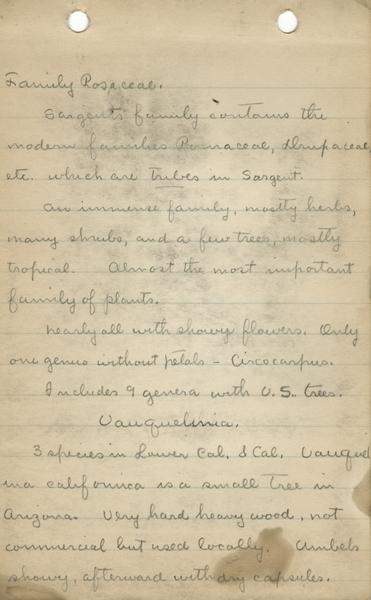 Family Rosaceae.
Sargent's family contains the
modern families Pomaceae, Drupaceae,
etc. which are tribes in Sargent.
An immense family, mostly herbs,
many shrubs, and a few trees, mostly
tropical. Almost the most important
family of plants.
Nearly all with showy flowers. Only
one genus without petals - Circocarpus.
Includes 9 genera with U.S. trees.
Vauquelinia.
3 species in Lower Cal. & Cal. Vauquel
inia californica is a small tree in
Arizona. Very hard heavy wood, not
commercial but used locally. Umbels
showy, afterward with dry capsules.